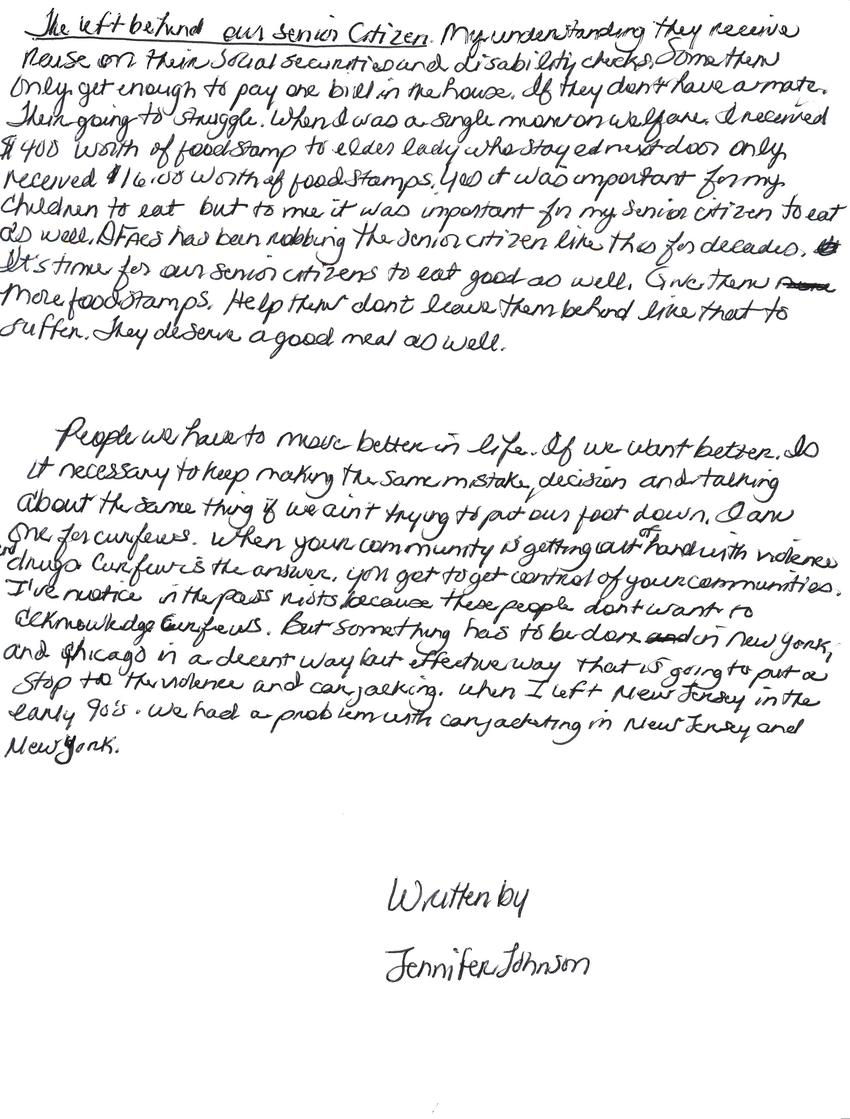 The left behind our senior Citizen. My understanding they receive
Reuse on their Social securities and disability checks. Some them
Only get enough to pay one bill in the house. If they don't have a mate.
Their going to struggle. When I was a single mom on welfare. I received
$400 worth of food stamp to elder lady who stayed next door only
received $16.00 worth of food stamps. Yes it was important for my
Children to eat but to me it was important for my senior citizen to eat
as well. DFACS has been robbing the senior citizen like this for decades.
It's time for our senior citizens to eat good as well. Give them
More food stamps. Help them don't leave them behind like that to
suffer. They deserve a good meal as well.
People we have to move better in life. If we want better. Is
it necessary to keep making the same mistake, decision and talking
about the same thing if we ain't trying to put our foot down. I am
one for curfews. When your community is getting out of hand with violence
and drugs Curfew is the answer. You got to get control of your communities.
I've notice in the pass riots because these people don't want to
acknowledge curfews. But something has to be done in New York,
and Chicago in a decent way but effective way that is going to put a
Stop to the violence and carjacking. When I left New Jersey in the
early 90's. We had a problem with carjacking in New Jersey and
New York.
Written by
Jennifer Johnson